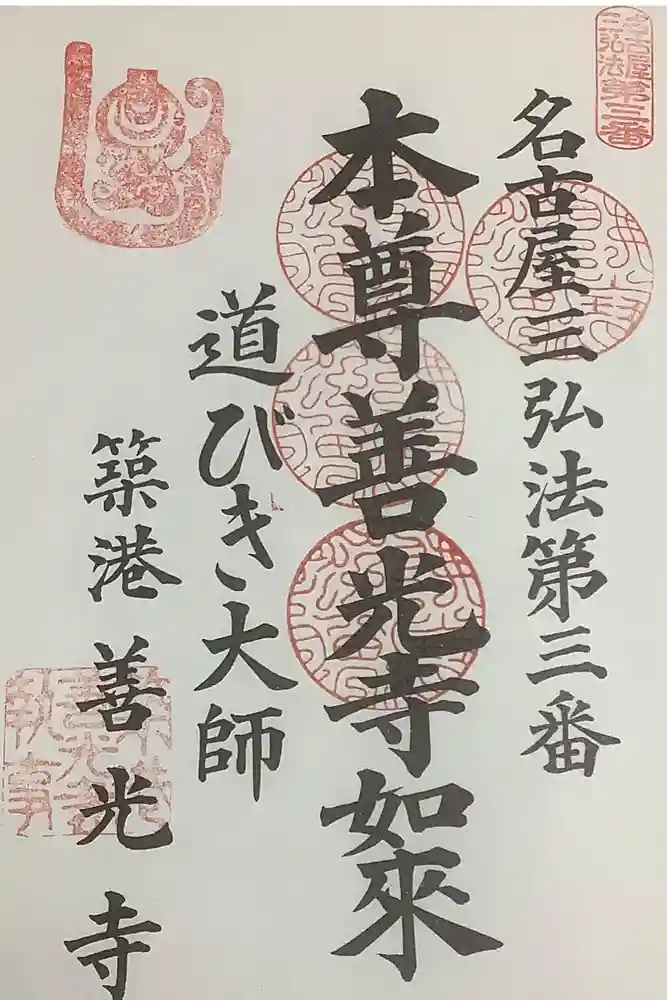 名古屋三弘法第三番
名古屋三弘法第三番
本尊善光寺如來
道びき大師
築港善光寺